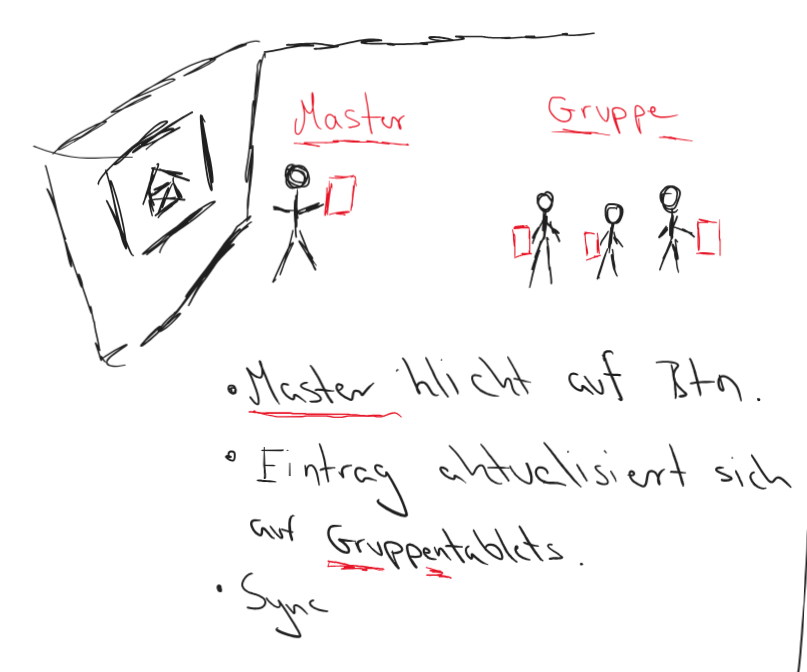 Master
Gruppe
• Master klickt auf Btn.
• Eintrag aktualisiert sich
auf Gruppentablets.
• Sync